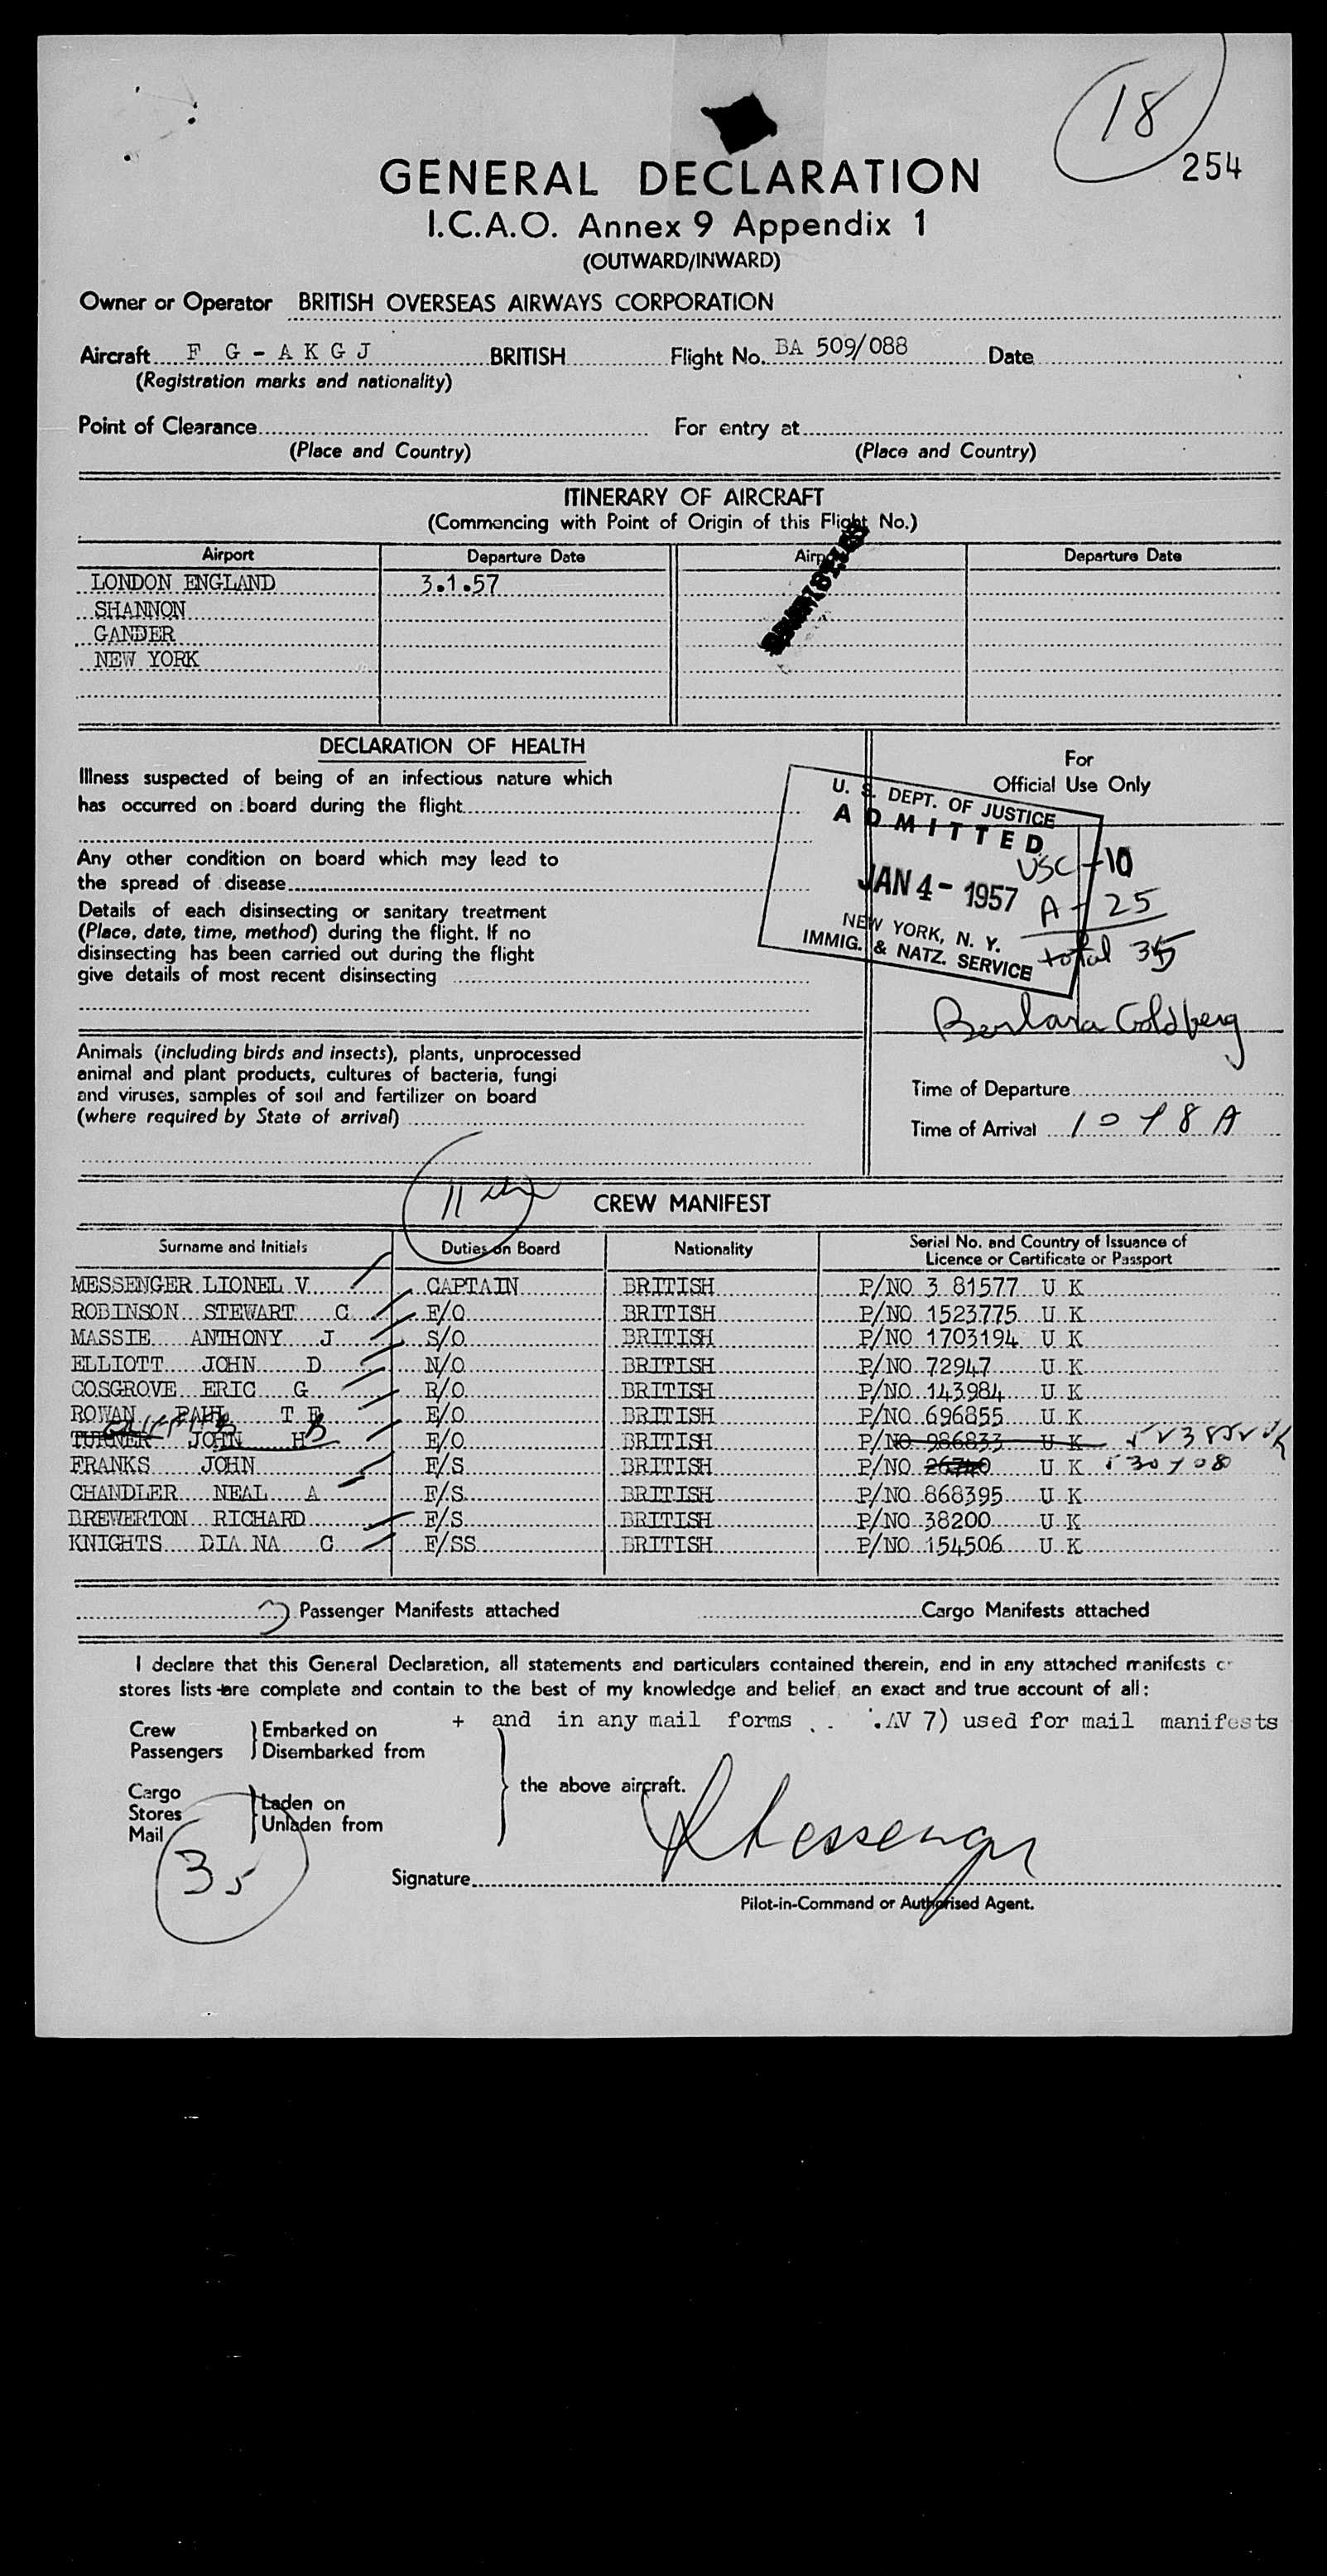 18
254
GENERAL DECLARATION
I.C.A.O. Annex 9 Appendix 1
(OUTWARD/INWARD)
Owner or Operator BRITISH OVERSEAS AIRWAYS CORPORATION
Aircraft F G - A K G J BRITISH Flight No. BA 509/088 Date
(Registration marks and nationality)
Point of Clearance For entry at
(Place and Country) (Place and Country)
ITINERARY OF AIRCRAFT
(Commencing with Point of Origin of this Flight No.)
Airport Departure Date Airport Departure Date
LONDON ENGLAND 3.1.57
SHANNON
GANDER
NEW YORK
DECLARATION OF HEALTH
Illness suspected of being of an infectious nature which
has occurred on board during the flight
Any other condition on board which may lead to
the spread of disease
Details of each disinsecting or sanitary treatment
(Place, date, time, method) during the flight. If no
disinsecting has been carried out during the flight
give details of most recent disinsecting
For
Official Use Only
U. S. DEPT. OF JUSTICE
ADMITTED
JAN 4 - 1957
NEW YORK, N. Y.
IMMIG. & NATZ. SERVICE
USC - 10
A - 25
total 35
Barbara Goldberg
Animals (including birds and insects), plants, unprocessed
animal and plant products, cultures of bacteria, fungi
and viruses, samples of soil and fertilizer on board
(where required by State of arrival)
Time of Departure
Time of Arrival
11
CREW MANIFEST
Surname and Initials Duties on Board Nationality Serial No. and Country of Issuance of
Licence or Certificate or Passport
MESSENGER LIONEL V CAPTAIN BRITISH P/NO 3 81577 U K
ROBINSON STEWART C F/O BRITISH P/NO 1523775 U K
MASSIE ANTHONY J S/O BRITISH P/NO 1703194 U K
ELLIOTT JOHN D N/O BRITISH P/NO 72947 U K
COSGROVE ERIC G R/O BRITISH P/NO 143984 U K
ROWAN PAUL T E E/O BRITISH P/NO 696855 U K
TURNER JOHN H E/O BRITISH P/NO 986833 U K
FRANKS JOHN F/S BRITISH P/NO U K
CHANDLER NEAL A F/S BRITISH P/NO 868395 U K
BREWERTON RICHARD F/S BRITISH P/NO 38200 U K
KNIGHTS DIANA C F/SS BRITISH P/NO 154506 U K
3 Passenger Manifests attached Cargo Manifests attached
I declare that this General Declaration, all statements and particulars contained therein, and in any attached manifests or
stores lists are complete and contain to the best of my knowledge and belief, an exact and true account of all:
+ and in any mail forms AV 7) used for mail manifests
Crew Embarked on
Passengers Disembarked from
the above aircraft.
Cargo
Stores Laden on
Mail Unladen from
35
Signature Messenger
Pilot-in-Command or Authorised Agent.